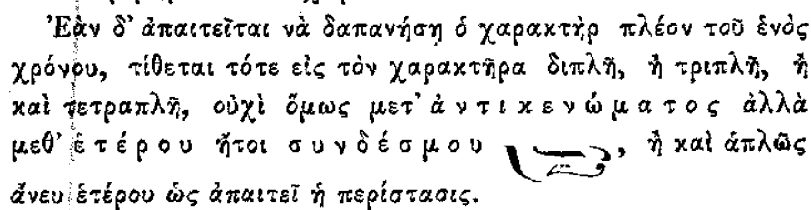 Ἐὰν δ' ἀπαιτεῖται νὰ δαπανήσῃ ὁ χαρακτὴρ πλέον τοῦ ἑνὸς
χρόνου, τίθεται τότε εἰς τὸν χαρακτῆρα διπλῆ, ἢ τριπλῆ, ἢ
καὶ τετραπλῆ, οὐχὶ ὅμως μετ' ἀντικενώματος ἀλλὰ
μεθ' ἑτέρου ἤτοι συνδέσμου , ἢ καὶ ἁπλῶς
ἄνευ ἑτέρου ὡς ἀπαιτεῖ ἡ περίστασις.